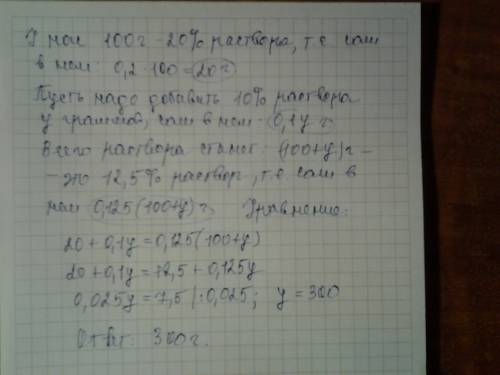 У нас 100г - 20% раствора, т.е. соли
в нем: 0,2 · 100 = 20г
Пусть надо добавить 10% раствора
y граммов, соли в нем - 0,1y г.
Всего раствора станет: (100+y)г -
- это 12,5% раствор, т.е. соли в
нем 0,125(100+y)г. Уравнение:
20 + 0,1y = 0,125(100+y)
20 + 0,1y = 12,5 + 0,125y
0,025y = 7,5 |:0,025; y = 300
Ответ: 300г.